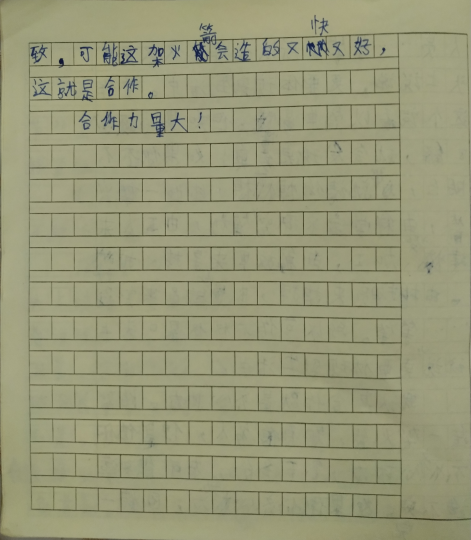 致，可能这架火箭会造的又快又好，
这就是合作。
合作力量大！